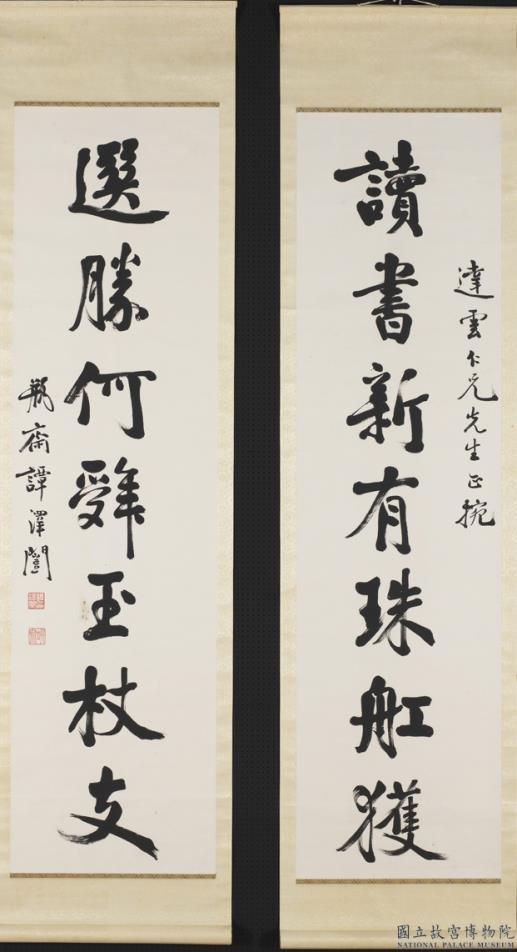 達雲仁兄先生正捥
讀書新有珠舡獲
選勝何辤玉杖支
瓶齋譚澤闓
國立故宮博物院
NATIONAL PALACE MUSEUM